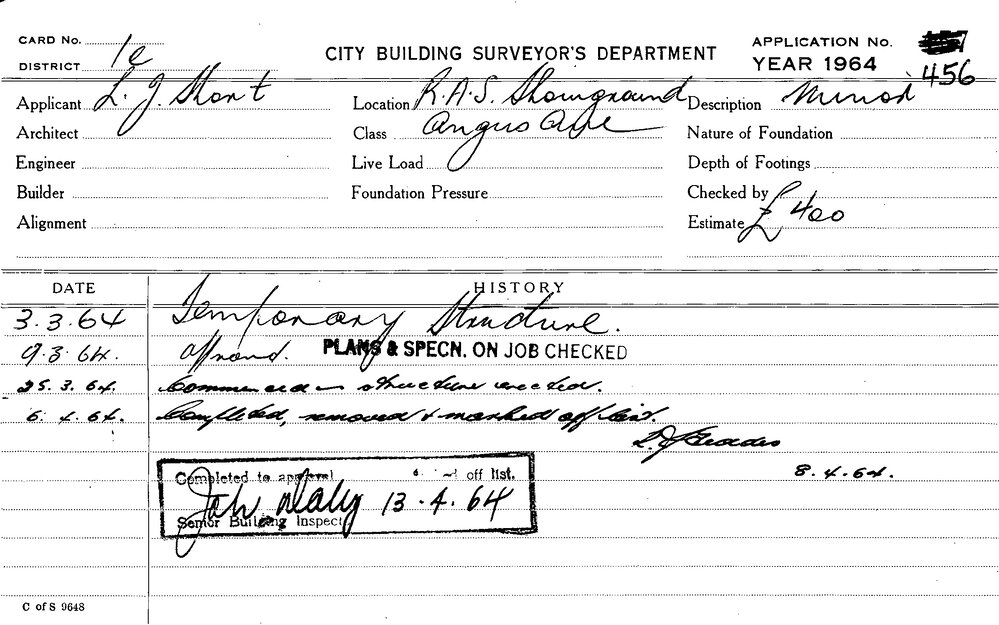 CARD No.
DISTRICT 1c
CITY BUILDING SURVEYOR'S DEPARTMENT
APPLICATION No. 456
YEAR 1964
Applicant L. J. Short
Location R.A.S. Showground
Description Minor
Architect
Class Angus Ave
Nature of Foundation
Engineer
Live Load
Depth of Footings
Builder
Foundation Pressure
Checked by
Alignment
Estimate £400
DATE HISTORY
3.3.64 Temporary Structure.
9.3.64. Approved. PLANS & SPECN. ON JOB CHECKED
25.3.64. Commenced structure erected.
6.4.64. Completed, removed & marked off list.
L. J.
8.4.64.
Completed to approval off list.
John Daley 13.4.64
Senior Building Inspect
C of S 9648